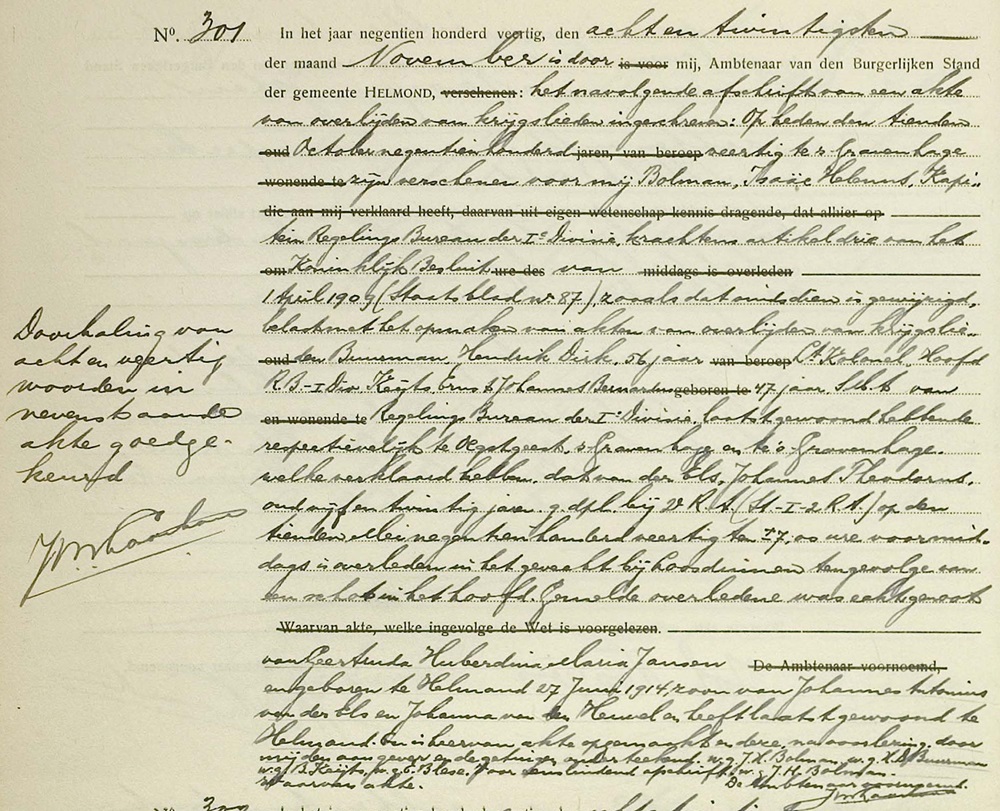 No. 301 In het jaar negentien honderd veertig, den acht en twintigsten
der maand November is door is voor mij, Ambtenaar van den Burgerlijken Stand
der gemeente HELMOND, verschenen: het navolgende afschrift van een akte
van overlijden van krijgslieden ingeschreven: Op heden den tienden
oud October negentien honderd jaren, van beroep veertig te 's Gravenhage
wonende te zijn verschenen voor mij Bolman, Isaäc Helenus, Kapi-
die aan mij verklaard heeft, daarvan uit eigen wetenschap kennis dragende, dat alhier op
tein Regelings Bureau der Ie Divisie, krachtens artikel drie van het
om Koninklijk Besluit ure des van middags is overleden
1 April 1909 (Staatsblad no 87) zooals dat sindsdien is gewijzigd,
belast met het opmaken van akten van overlijden van krijgslie-
oud den Buurman, Hendrik Dirk, 56 jaar van beroep Lt. Kolonel, Hoofd
R.B.-I Div. Keijts Ernst Johannes Bernardus geboren te 47 jaar, van
en wonende te Regelings Bureau der Ie Divisie, laatst gewoond hebbende
respectievelijk te Oegstgeest, 's Gravenhage en te 's Gravenhage.
welke verklaard hebben, dat van der Els, Johannes Theodorus,
oud vijf en twintig jaren, g. dpl. bij 2e R.A. (St-I-2 R.A.) op den
tienden Mei negentien honderd veertig te ± 7.00 ure voormid-
dags is overleden in het gevecht bij Loosduinen tengevolge van
een schot in het hoofd. Gemelde overledene was echtgenoot
Waarvan akte, welke ingevolge de Wet is voorgelezen.
van Geertruda Huberdina Maria Jansen De Ambtenaar voornoemd,
en geboren te Helmond 27 Juni 1914, zoon van Johannes Antonius
van der Els en Johanna van den Heuvel en heeft laatst gewoond te
Helmond. En is hiervan akte opgemaakt en deze, na voorlezing, door
mij den aangever en de getuigen onderteekend. w.g. J.H. Bolman, w.g. H.D. Buurman
w.g. B. Keijts, w.g. E. Blese. Voor eensluidend afschrift, w.g. J.H. Bolman.
Waarvan akte. De Ambtenaar voornoemd.
Doorhaling van
acht en veertig
woorden in
nevenstaande
akte goedge-
keurd